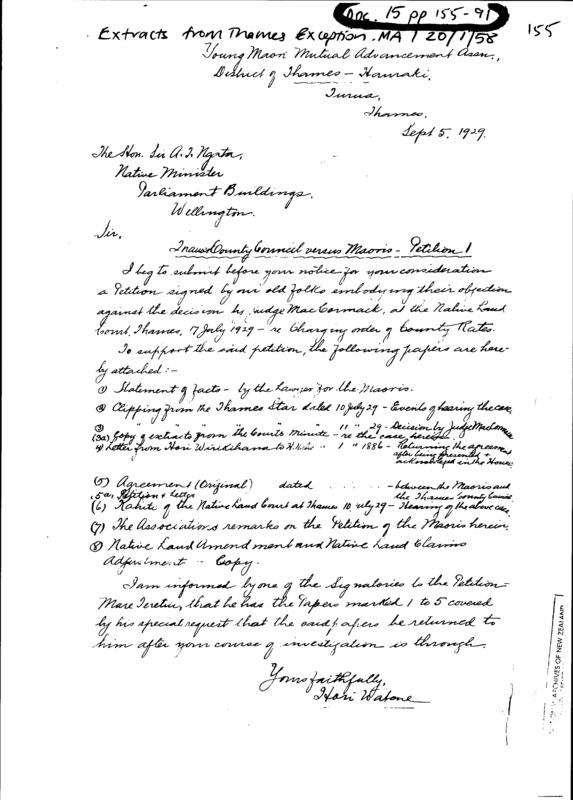 Doc. 15 pp 155-91
Extracts from Thames Exception. MA 1 20/1/58
155
Young Maori Mutual Advancement Assn.,
District of Thames - Hauraki.
Turua,
Thames,
Sept 5, 1929.
The Hon. Sir A. T. Ngata,
Native Minister
Parliament Buildings.
Wellington.
Sir,
County Council versus Maoris - Petition 1
I beg to submit before your notice for your consideration
a Petition signed by our old folks embodying their objection
against the decision by Judge MacCormack, at the Native Land
Court, Thames, 17 July 1929 - re Charging order of County Rates.
To support the said petition, the following papers are here-
by attached :-
(1) Statement of facts - by the Lawyer for the Maoris.
(2) Clipping from the Thames Star dated 10 July 29 - Events of hearing the case.
(3) " " " " " 11 " 29 - Decision by Judge MacCormack
(3a) Copy of extracts from the Courts minute - re the case, herein.
4) Letter from Hori to 1 " 1886 - Returning the agreement
after being presented +
acknowledged in the House
(5) Agreement (Original) dated - between the Maoris and
the Thames County Council.
5a. Petition + Letter
(6) Kahiti of the Native Land Court at Thames 10 July 29 - Hearing of the above case.
(7) The Associations remarks on the Petition of the Maoris herein.
(8) Native Land Amendment and Native Land Claims
Adjustment - Copy.
I am informed by one of the Signatories to the Petition -
Mare Teretiu, that he has the Papers marked 1 to 5 covered
by his special request that the said papers be returned to
him after your course of investigation is through.
Yours faithfully,
Hori Watene
ARCHIVES OF NEW ZEALAND